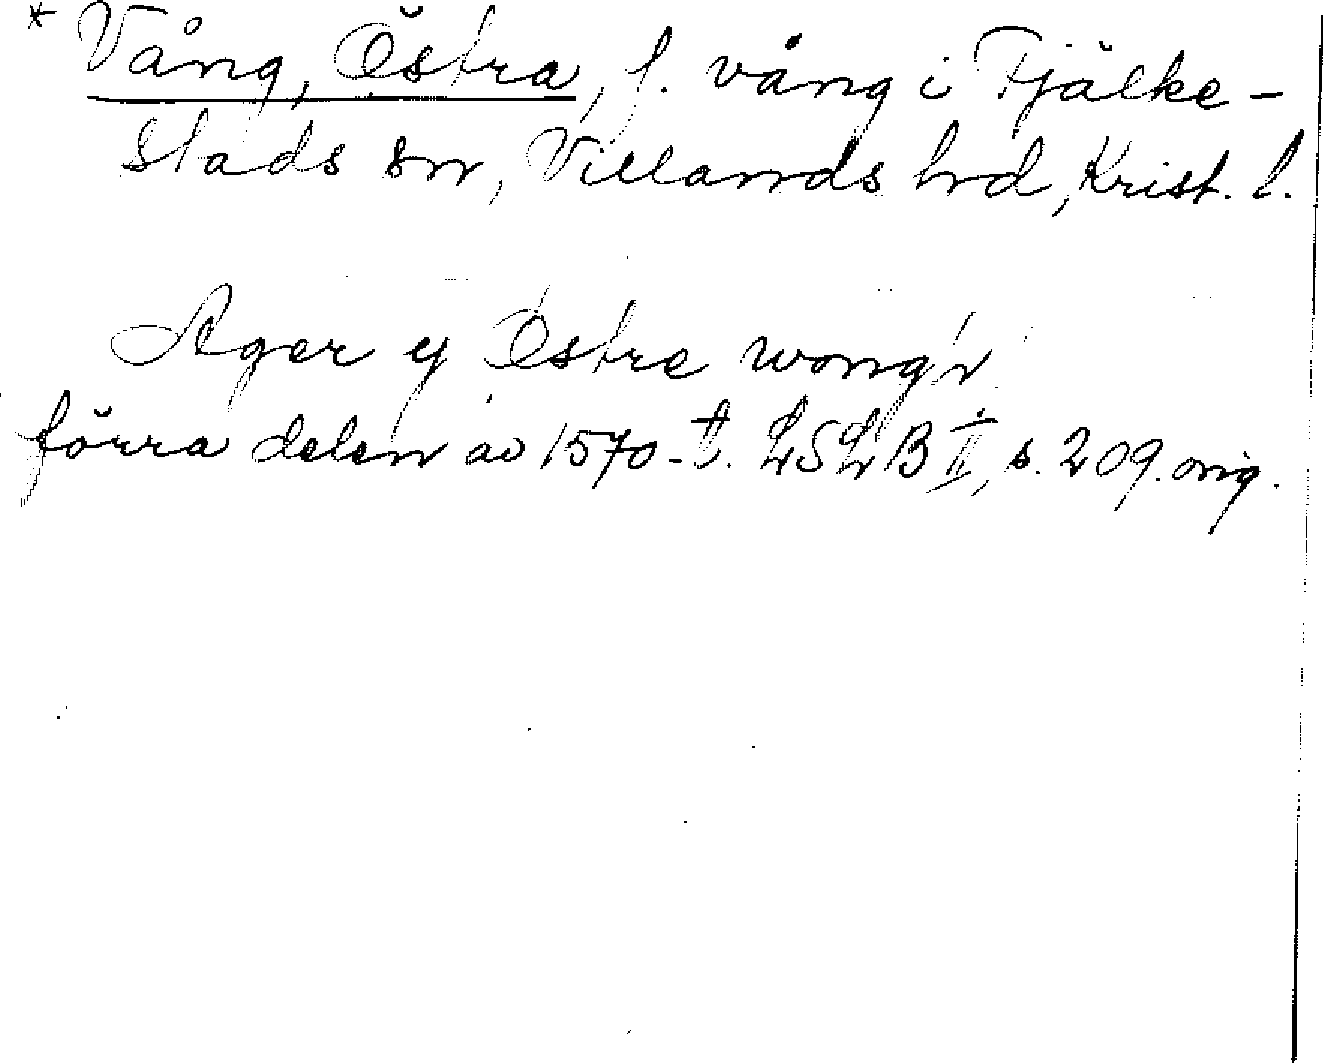 * Vång, Östra, f. vång i Fjälke-
stads sn, Villands hrd, Krist. l.
Ager y Østre wong'n
förra delen av 1570-t. LSLB II, s. 209. orig.